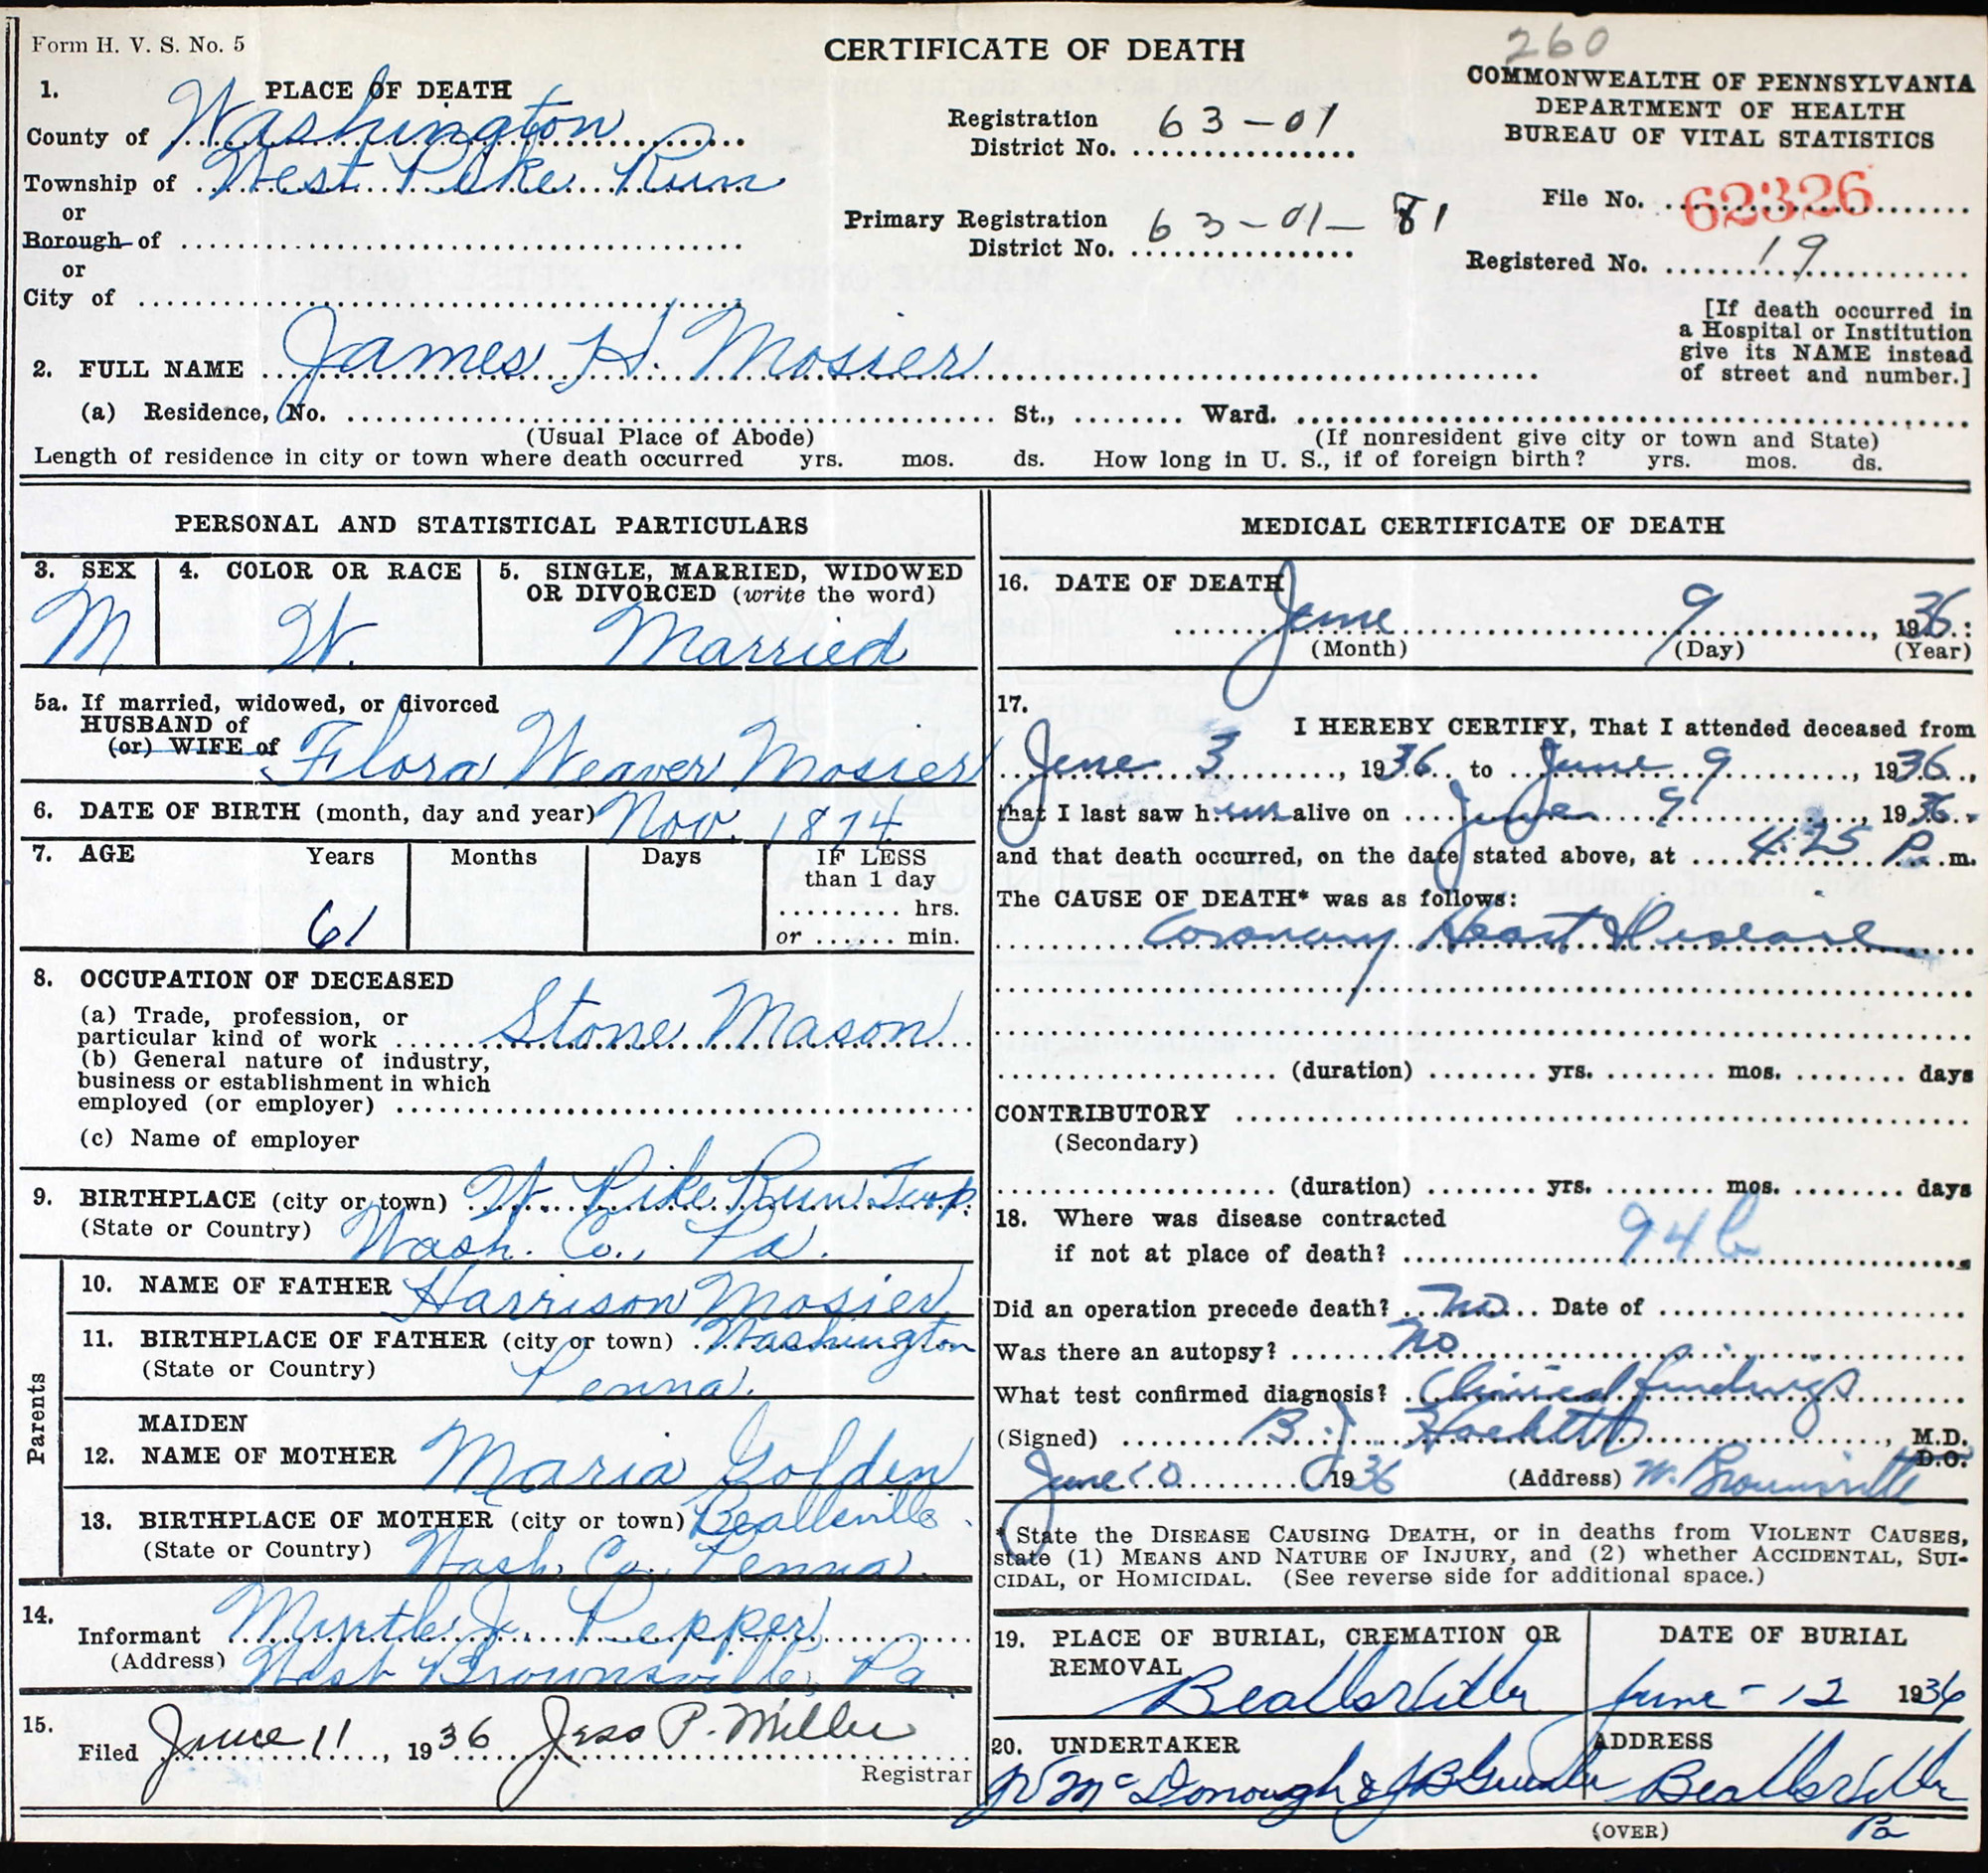 Form H. V. S. No. 5
CERTIFICATE OF DEATH
260
COMMONWEALTH OF PENNSYLVANIA
DEPARTMENT OF HEALTH
BUREAU OF VITAL STATISTICS
1. PLACE OF DEATH
County of Washington
Township of West Pike Run
or
Borough of
or
City of
Registration District No. 63-01
Primary Registration District No. 63-01-81
File No. 62326
Registered No. 19
[If death occurred in
a Hospital or Institution
give its NAME instead
of street and number.]
2. FULL NAME James H. Mosier
(a) Residence, No. St., Ward.
(Usual Place of Abode) (If nonresident give city or town and State)
Length of residence in city or town where death occurred yrs. mos. ds. How long in U. S., if of foreign birth? yrs. mos. ds.
PERSONAL AND STATISTICAL PARTICULARS
3. SEX
M
4. COLOR OR RACE
W.
5. SINGLE, MARRIED, WIDOWED
OR DIVORCED (write the word)
Married
5a. If married, widowed, or divorced
HUSBAND of
(or) WIFE of Flora Weaver Mosier
6. DATE OF BIRTH (month, day and year) Nov. 1874
7. AGE Years Months Days IF LESS
than 1 day
hrs.
or min.
61
8. OCCUPATION OF DECEASED
(a) Trade, profession, or
particular kind of work Stone Mason
(b) General nature of industry,
business or establishment in which
employed (or employer)
(c) Name of employer
9. BIRTHPLACE (city or town) W. Pike Run Twp.
(State or Country) Wash. Co., Pa.
Parents
10. NAME OF FATHER Harrison Mosier
11. BIRTHPLACE OF FATHER (city or town) Washington
(State or Country) Penna.
MAIDEN
12. NAME OF MOTHER Maria Golden
13. BIRTHPLACE OF MOTHER (city or town) Beallsville
(State or Country) Wash. Co., Penna.
14.
Informant Myrtle J. Pepper
(Address) West Brownsville, Pa.
15.
Filed June 11, 1936 Jess P. Miller
Registrar
MEDICAL CERTIFICATE OF DEATH
16. DATE OF DEATH
June 9, 1936
(Month) (Day) (Year)
17.
I HEREBY CERTIFY, That I attended deceased from
June 3, 1936 to June 9, 1936,
that I last saw him alive on June 9, 1936
and that death occurred, on the date stated above, at 4:25 P.m.
The CAUSE OF DEATH* was as follows:
Coronary Heart Disease
(duration) yrs. mos. days
CONTRIBUTORY
(Secondary)
(duration) yrs. mos. days
18. Where was disease contracted
if not at place of death?
94b
Did an operation precede death? No Date of
Was there an autopsy? No
What test confirmed diagnosis? Clinical findings
(Signed) B. J. Hackett, M.D.
D.O.
June 10 1936 (Address) W. Brownsville
* State the DISEASE CAUSING DEATH, or in deaths from VIOLENT CAUSES,
state (1) MEANS AND NATURE OF INJURY, and (2) whether ACCIDENTAL, SUI-
CIDAL, or HOMICIDAL. (See reverse side for additional space.)
19. PLACE OF BURIAL, CREMATION OR
REMOVAL
Beallsville
DATE OF BURIAL
June - 12 1936
20. UNDERTAKER
McDonough &
ADDRESS
Beallsville
Pa
(OVER)